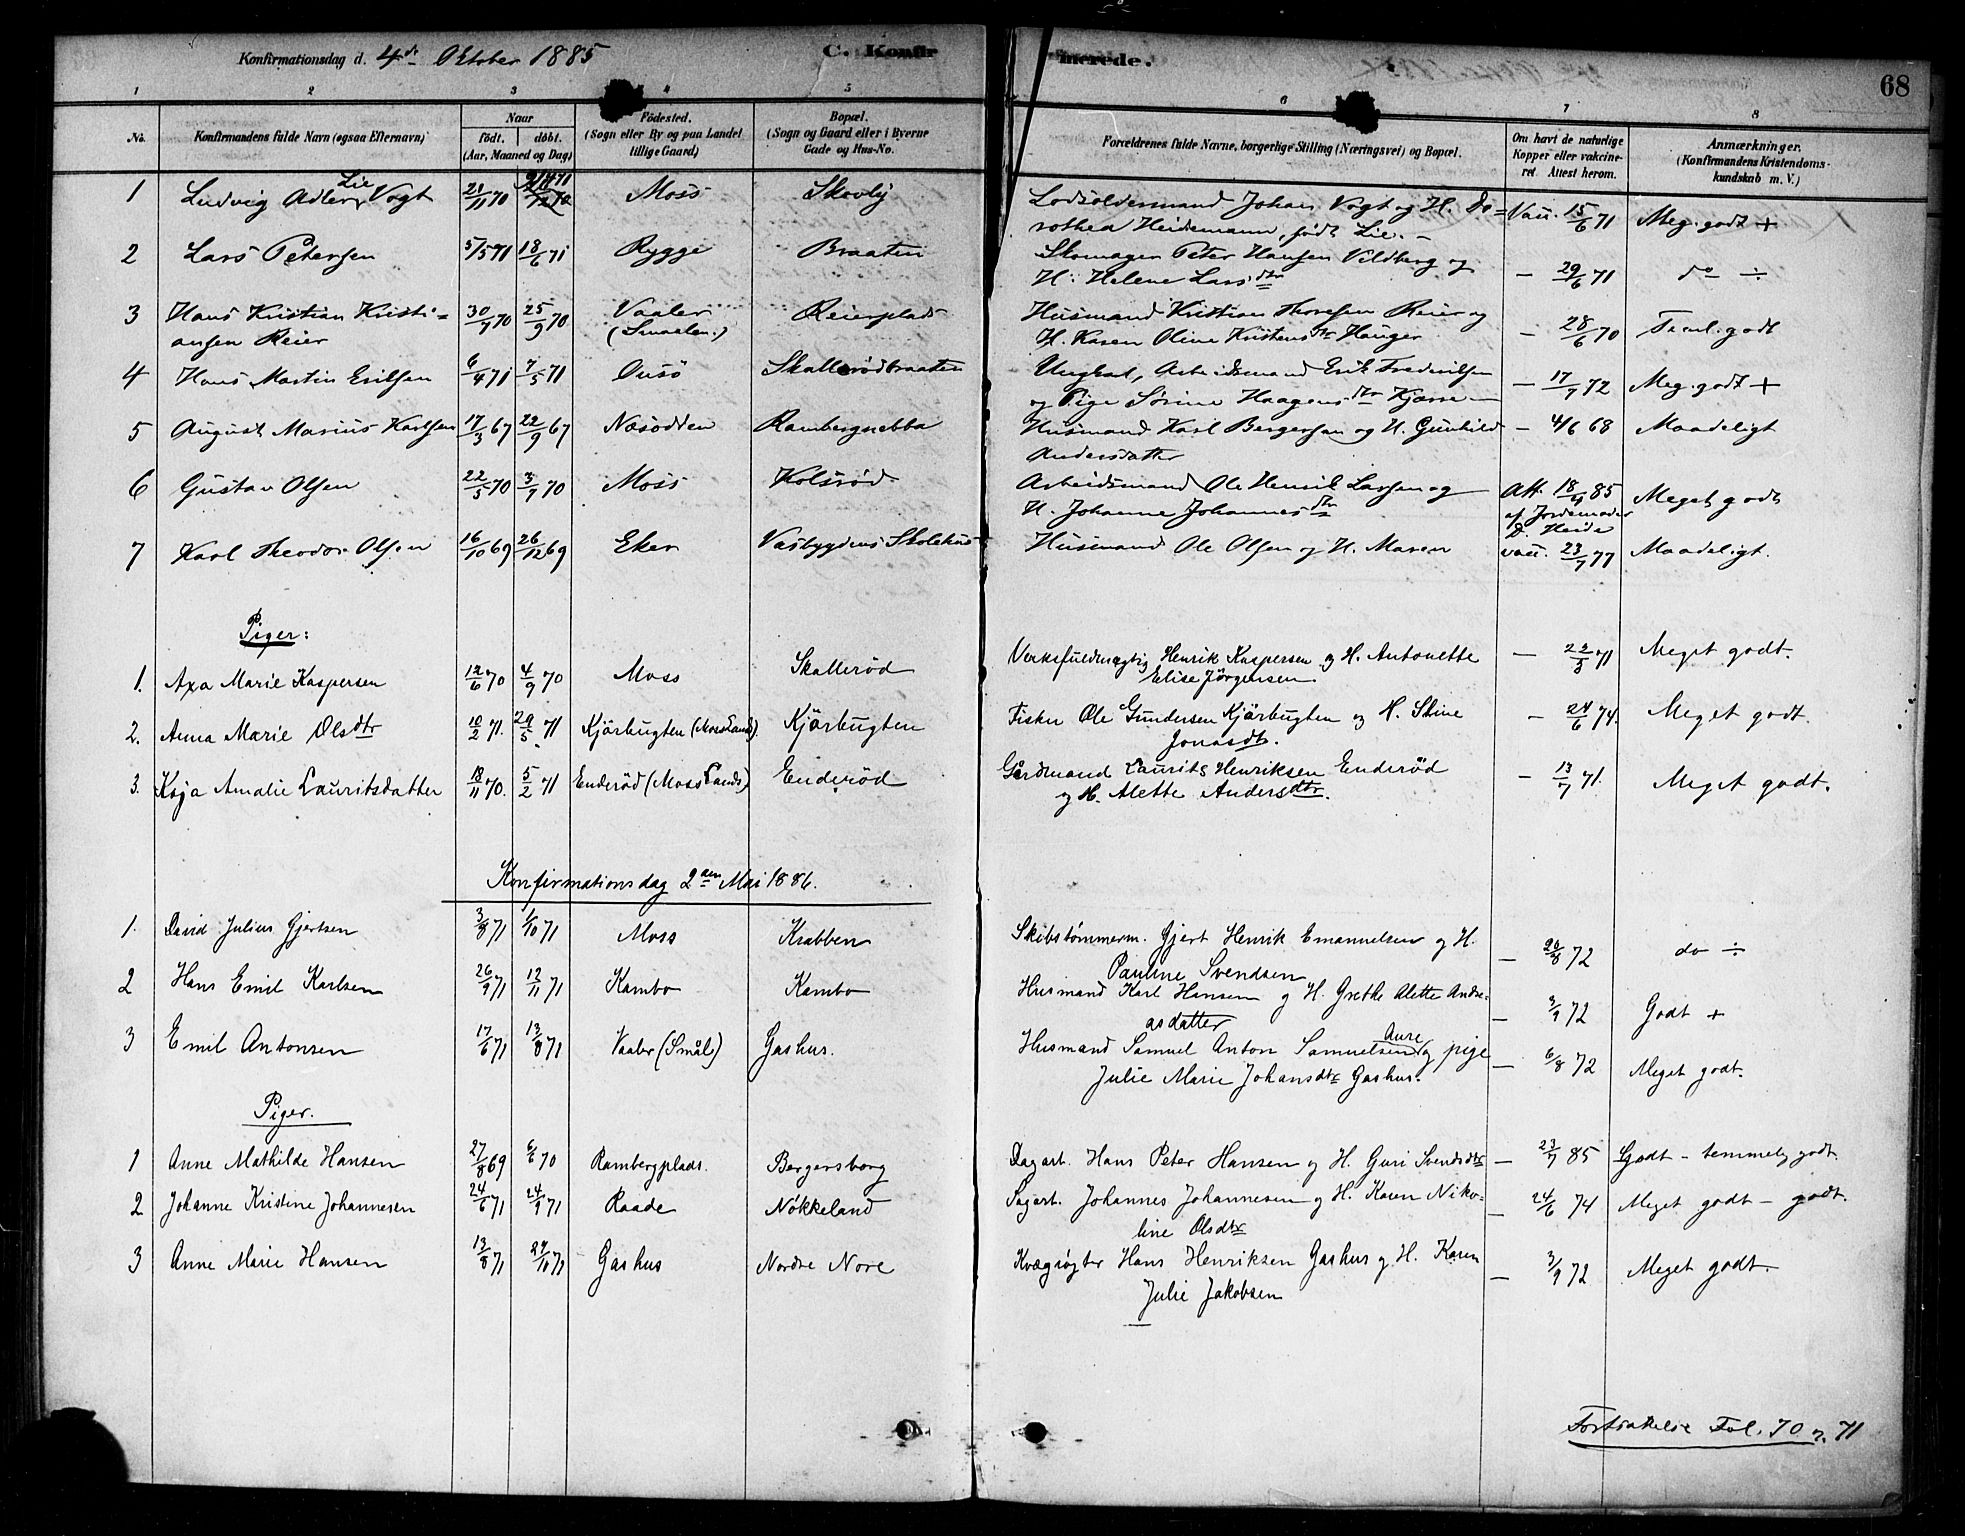 Konfirmationsdag d. 4de Oktober 1885
C. Konfir
merede.
68
1 2 3 4 5
6 7 8
No.
Konfirmandens fulde Navn (ogsaa Efternavn)
Naar
födt. döbt.
(Aar, Maaned og Dag)
Födested.
(Sogn eller By og paa Landet
tillige Gaard)
Bopæl.
(Sogn og Gaard eller i Byerne
Gade og Hus-No.
Forældrenes fulde Navne, borgerlige Stilling (Næringsvei) og Bopæl.
Om havt de naturlige
Kopper eller vakcine-
ret. Attest herom.
Anmærkninger.
(Konfirmandens Kristendoms-
kundskab m. V.)
1 Ludvig Adler Lie Vogt 21/11 70 Moss Skovly Johan Vogt og H. Do= Vacc. 15/6 71 Meg. godt +
rothea Heidemann, født Lie. –
2 Lars Petersen 5/5 71 18/6 71 Rygge Braaten Skomager Peter Hansen Vildberg og
H: Helene Larsdtr – 29/6 71 do ÷
3 Hans Kristian Kristi= 30/7 70 25/9 70 Vaaler Reierplads Husmand Kristian Thoresen Reier og
ansen Reier (Smaalen.) H. Karen Oline Kristensdtr Hauger – 28/6 70 Teml. godt
4 Hans Martin Eriksen 6/4 71 7/5 71 Onsö Skallerødbraaten Ungkarl, Arbeidsmand Erik Frederiksen
og Pige Sørine Haagensdtr Kjærre – – 17/7 72 Meg. godt +
5 August Marius Karlsen 17/3 67 22/9 67 Næsodden Rambergnebba Husmand Karl Bergersen og H. Gunhild – 4/6 68 Maadeligt
Andersdatter
6 Gustav Olsen 22/5 70 3/7 70 Moss Kolsrød Arbeidsmand Ole Henrik Larsen og Att. 18/4 85 Meget godt
H. Johanne Johannesdtr af Jordemoder
D. Heide
7 Karl Theodor Olsen 16/10 69 26/12 69 Eker Vasbygdens Skolehus Husmand Ole Olsen og H. Maren vacc. 23/7 77 Maadeligt.
Piger:
1. Axa Marie Kaspersen 12/6 70 4/9 70 Moss Skallerød Verksfuldmægtig Henrik Kaspersen og H. Antonette – 22/3 71 Meget godt.
Elise Jörgensen
2. Anna Marie Olsdtr 10/2 71. 29/5 71 Kjärbugten (Moss Lands). Kjärbugten Fisker Ole Gundersen Kjärbugten og H. Stine – 24/6 74. Meget godt.
Jonasdt.
3. Kaja Amalie Lauritsdatter 18/11 70. 5/2 71 Enderöd (Moss Lands) Enderöd Gårdmand Laurits Henriksen Enderöd – 13/7 71. Meget godt.
og H. Alette Andersdtr.
Konfirmationsdag 2den Mai 1886.
1. David Julius Gjertsen 3/8 71 1/10 71 Moss Krabben Skibstömmerm. Gjert Henrik Emanuelsen og H.
Pauline Svendsen – 20/8 72 do ÷
2 Hans Emil Karlsen 26/9 71 12/11 71 Kambo Kambo Husmand Karl Hansen og H. Grethe Alette Andre-
asdatter – 3/9 72 Godt +
3 Emil Antonsen 17/6 71 13/8 71 Vaaler (Smål) Gashus. Husmand Samuel Anton Samuelsen Aure og pige
Julie Marie Johansdtr Gashus. – 6/8 72 Meget godt.
Piger.
1 Anne Mathilde Hansen 27/8 69 6/6 70 Rambergplads. Bergersborg Dagarb. Hans Peter Hansen og H. Guri Svendsdtr – 23/7 85 Godt – temmelig godt.
2 Johanne Kristine Johannesen 24/6 71 24/9 71 Raade Nökkeland Sagarb. Johannes Johannesen og H. Karen Niko-
line Olsdtr – 24/6 74 Meget godt – godt.
3 Anne Marie Hansen 13/8 71 29/10 71 Gashus Nordre Nore Kvægrögter Hans Henriksen Gashus og H. Karen
Julie Jakobsen – 3/9 72 Meget godt.
Fortsættelse Fol. 70 n. 71